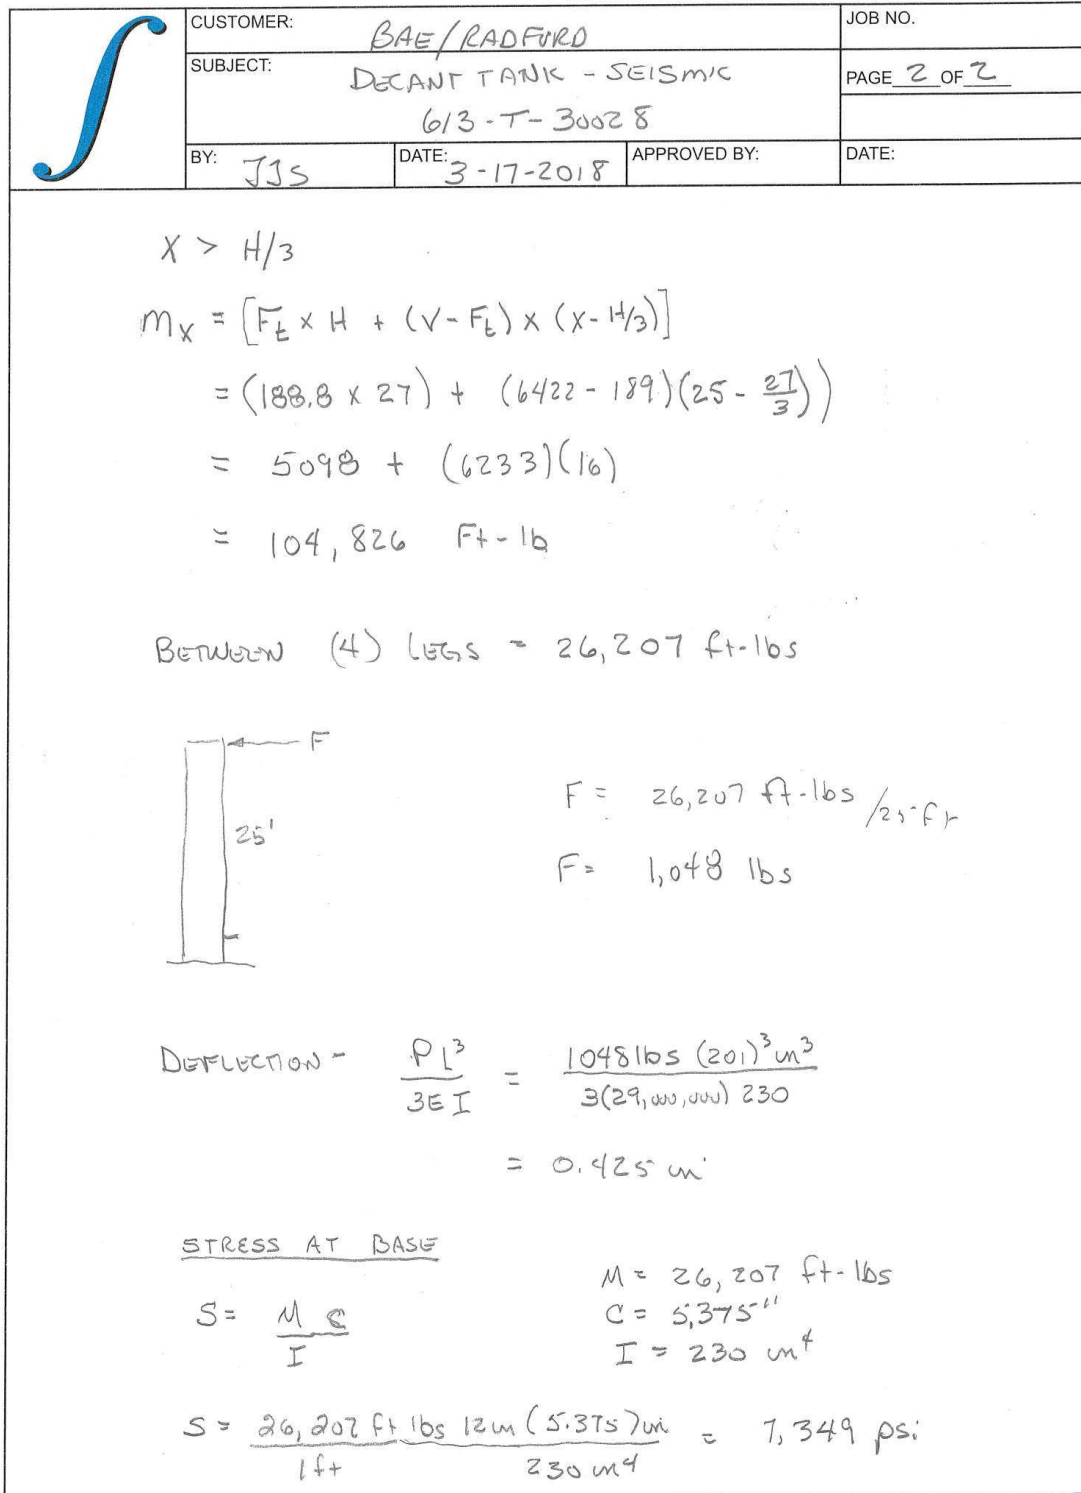 CUSTOMER: BAE/RADFORD
JOB NO.
SUBJECT: DECANT TANK - SEISMIC
613-T-30028
PAGE 2 OF 2
BY: JJS DATE: 3-17-2018 APPROVED BY: DATE:
X > H/3
Mx = [Ft x H + (V-Ft) x (X-H/3)]
= (188.8 x 27) + (6422-189)(25-27/3))
= 5098 + (6233)(16)
= 104,826 Ft-lb
BETWEEN (4) LEGS = 26,207 ft-lbs
F
25'
F = 26,207 ft-lbs /25-ft
F = 1,048 lbs
DEFLECTION - PL³/3EI = 1048 lbs (201)³ in³/3(29,000,000) 230
= 0.425 in
STRESS AT BASE
M = 26,207 ft-lbs
S = M C/I
C = 5.375"
I = 230 in⁴
S = 26,207 ft lbs 12 in (5.375) in/1 ft 230 in⁴ = 7,349 psi